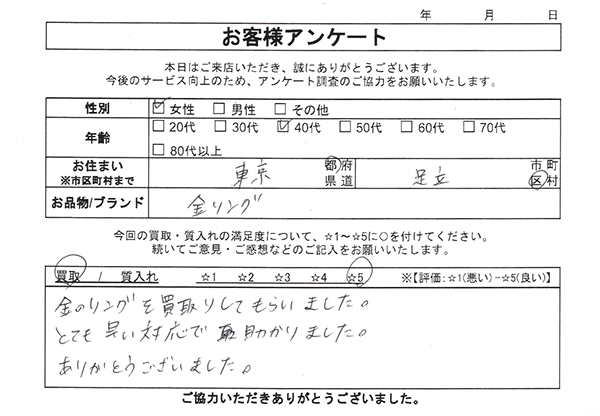 年 月 日
お客様アンケート
本日はご来店いただき、誠にありがとうございます。
今後のサービス向上のため、アンケート調査のご協力をお願いいたします。
性別 ☑女性 □男性 □その他
年齢 □20代 □30代 ☑40代 □50代 □60代 □70代
□80代以上
お住まい 東京 都府 足立 市町
※市区町村まで 県道 区村
お品物/ブランド 金リング
今回の買取・質入れの満足度について、☆1～☆5に○を付けてください。
続いてご意見・ご感想などのご記入をお願いいたします。
買取 / 質入れ ☆1 ☆2 ☆3 ☆4 ☆5 ※【評価:☆1(悪い)-☆5(良い)】
金のリングを買取りしてもらいました。
とても早い対応で 助かりました。
ありがとうございました。
ご協力いただきありがとうございました。